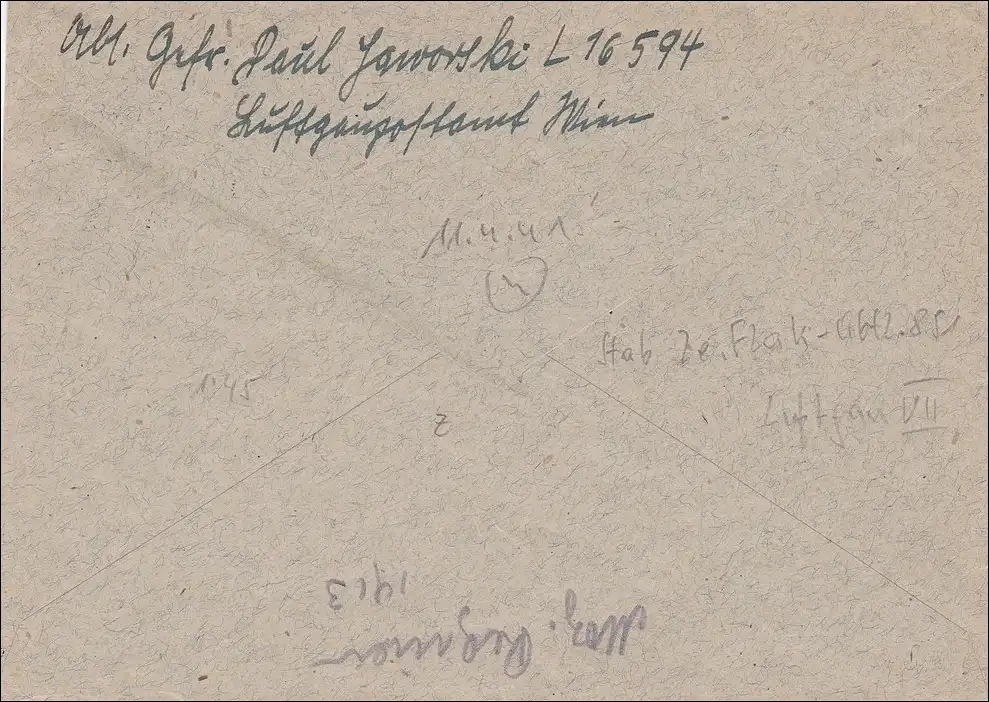 Abs. Gefr. Paul Jaworski L 16594
Luftgaupostamt Wien
11.4.41
Stab Le. Flak-Abtl. 851
Luftgau VII
1.45
z